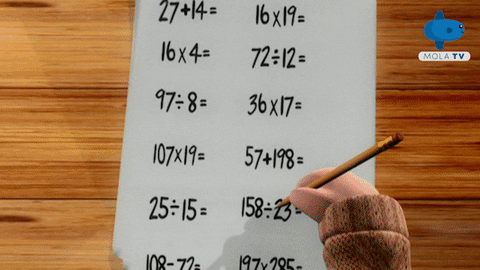 27+14= 16x19=
16x4= 72÷12=
97÷8= 36x17=
107x19= 57+198=
25÷15= 158÷23=
108-72= 197x285=
MOLA TV